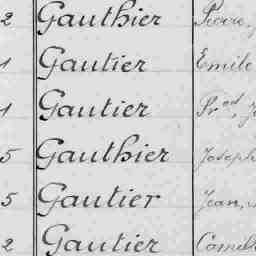 2 Gauthier Pierre,
1 Gautier Emile
1 Gautier
5 Gauthier Joseph
5 Gautier Jean,
2 Gautier Camille